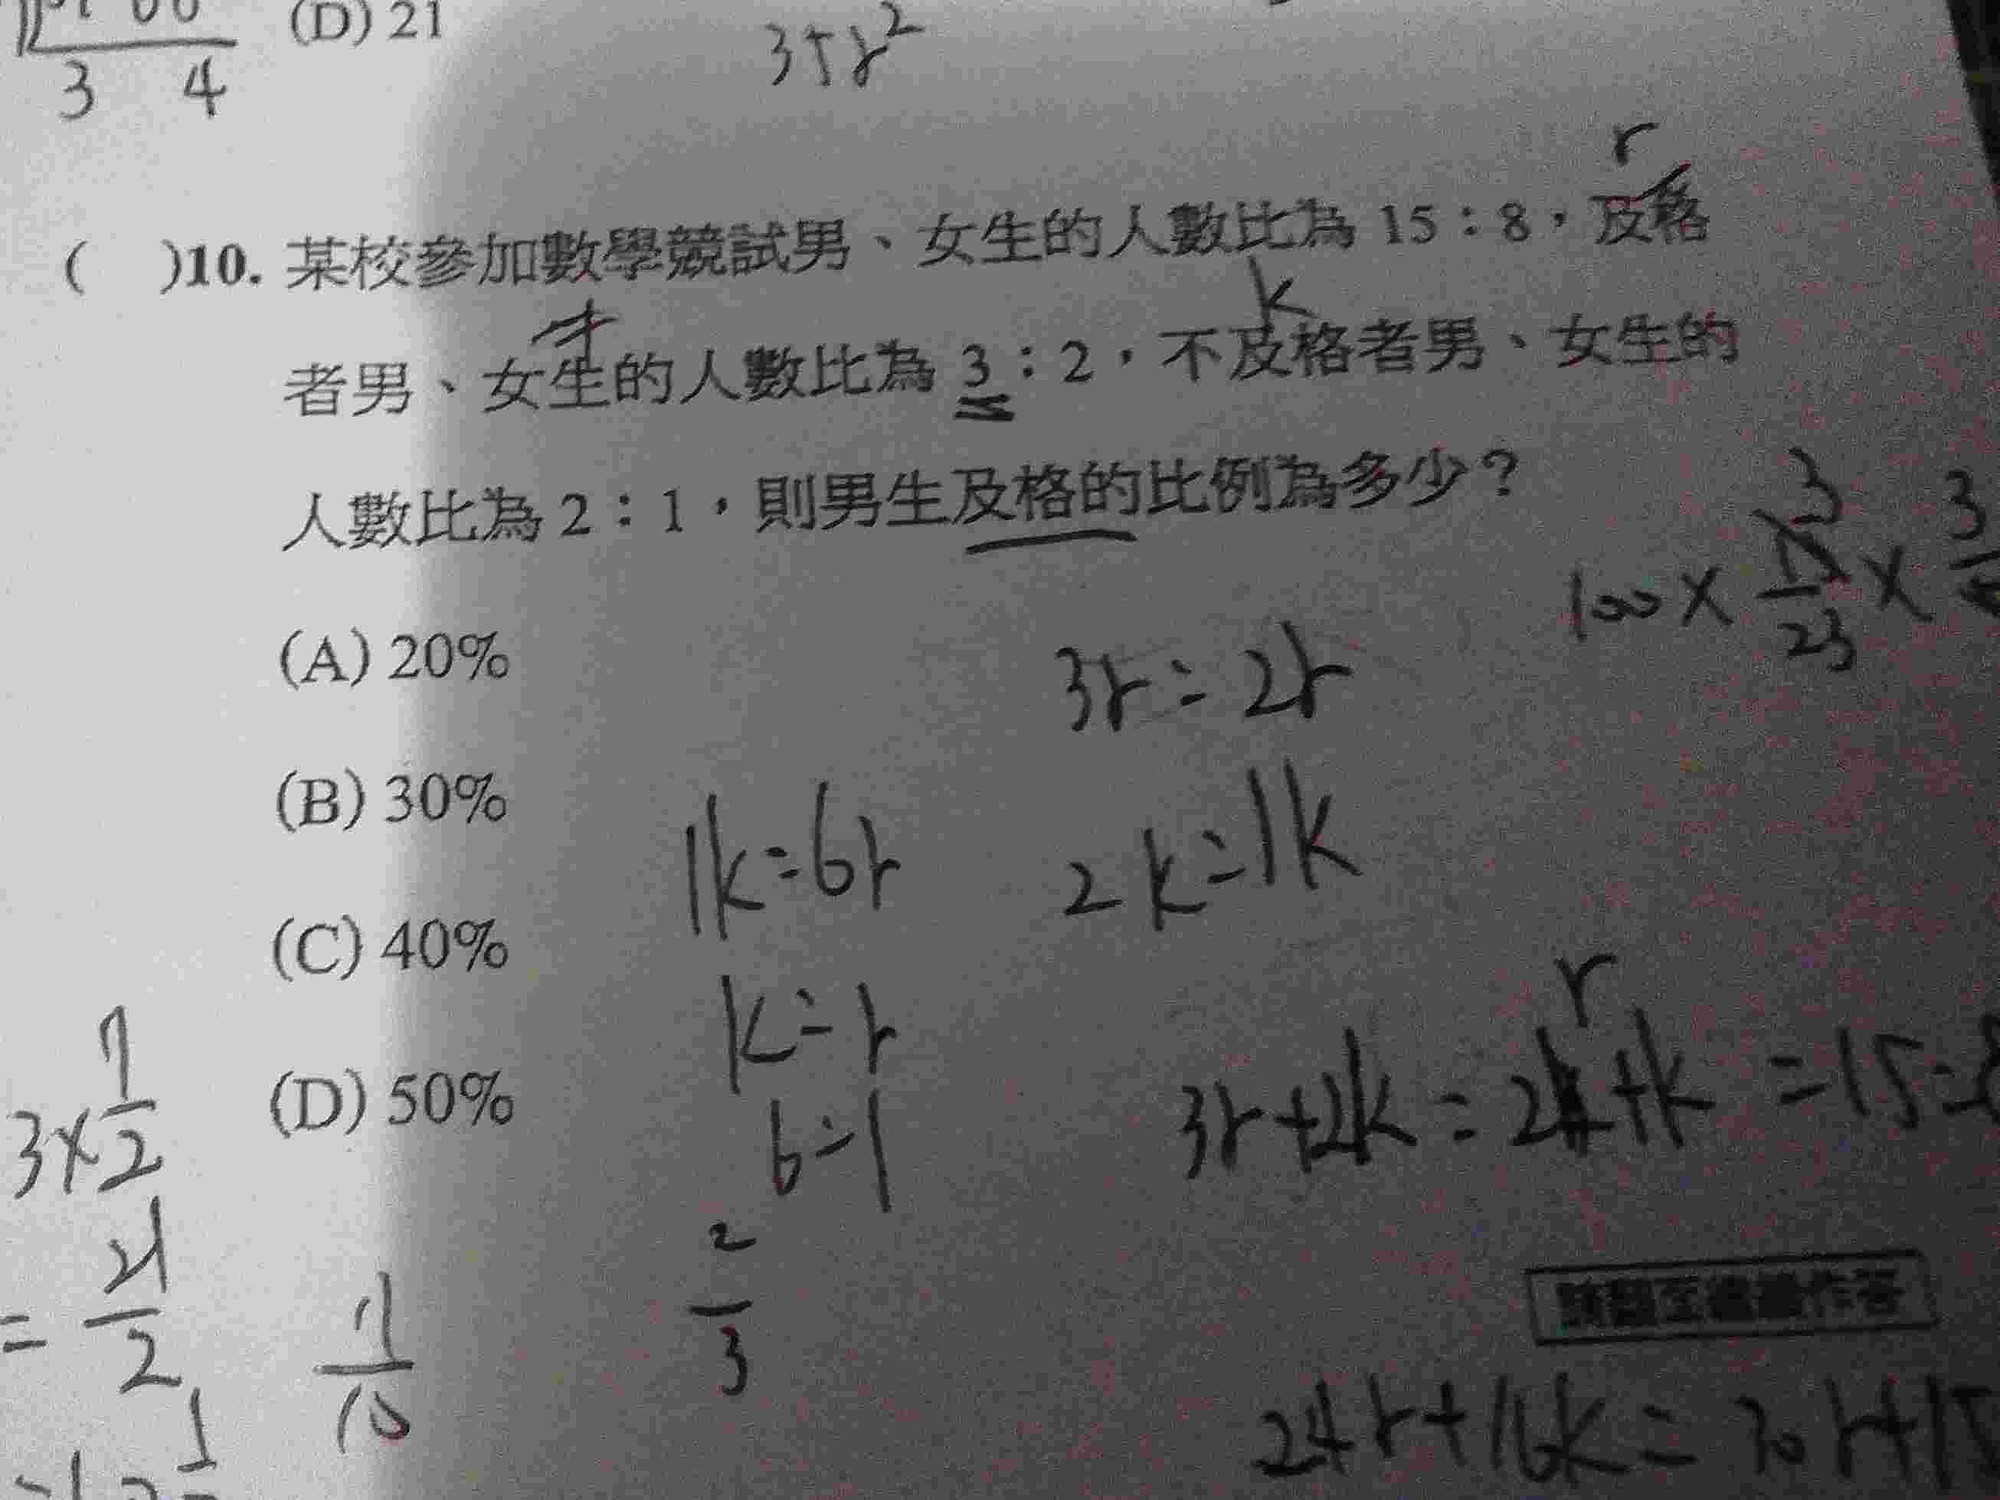 (D) 21
3 4
3+r²
r
( )10. 某校參加數學競試男、女生的人數比為 15：8，及格
k
者男、女生的人數比為 3：2，不及格者男、女生的
人數比為 2：1，則男生及格的比例為多少？
100 × 15/23 × 3
3
(A) 20%
3r : 2r
(B) 30%
1k = 6r
2k : 1k
(C) 40%
k : r
r
3r+2k : 2r+k = 15 : 8
(D) 50%
6 : 1
3×7/2
= 21/2
7/10
2/3
24r+16k = 30r+15